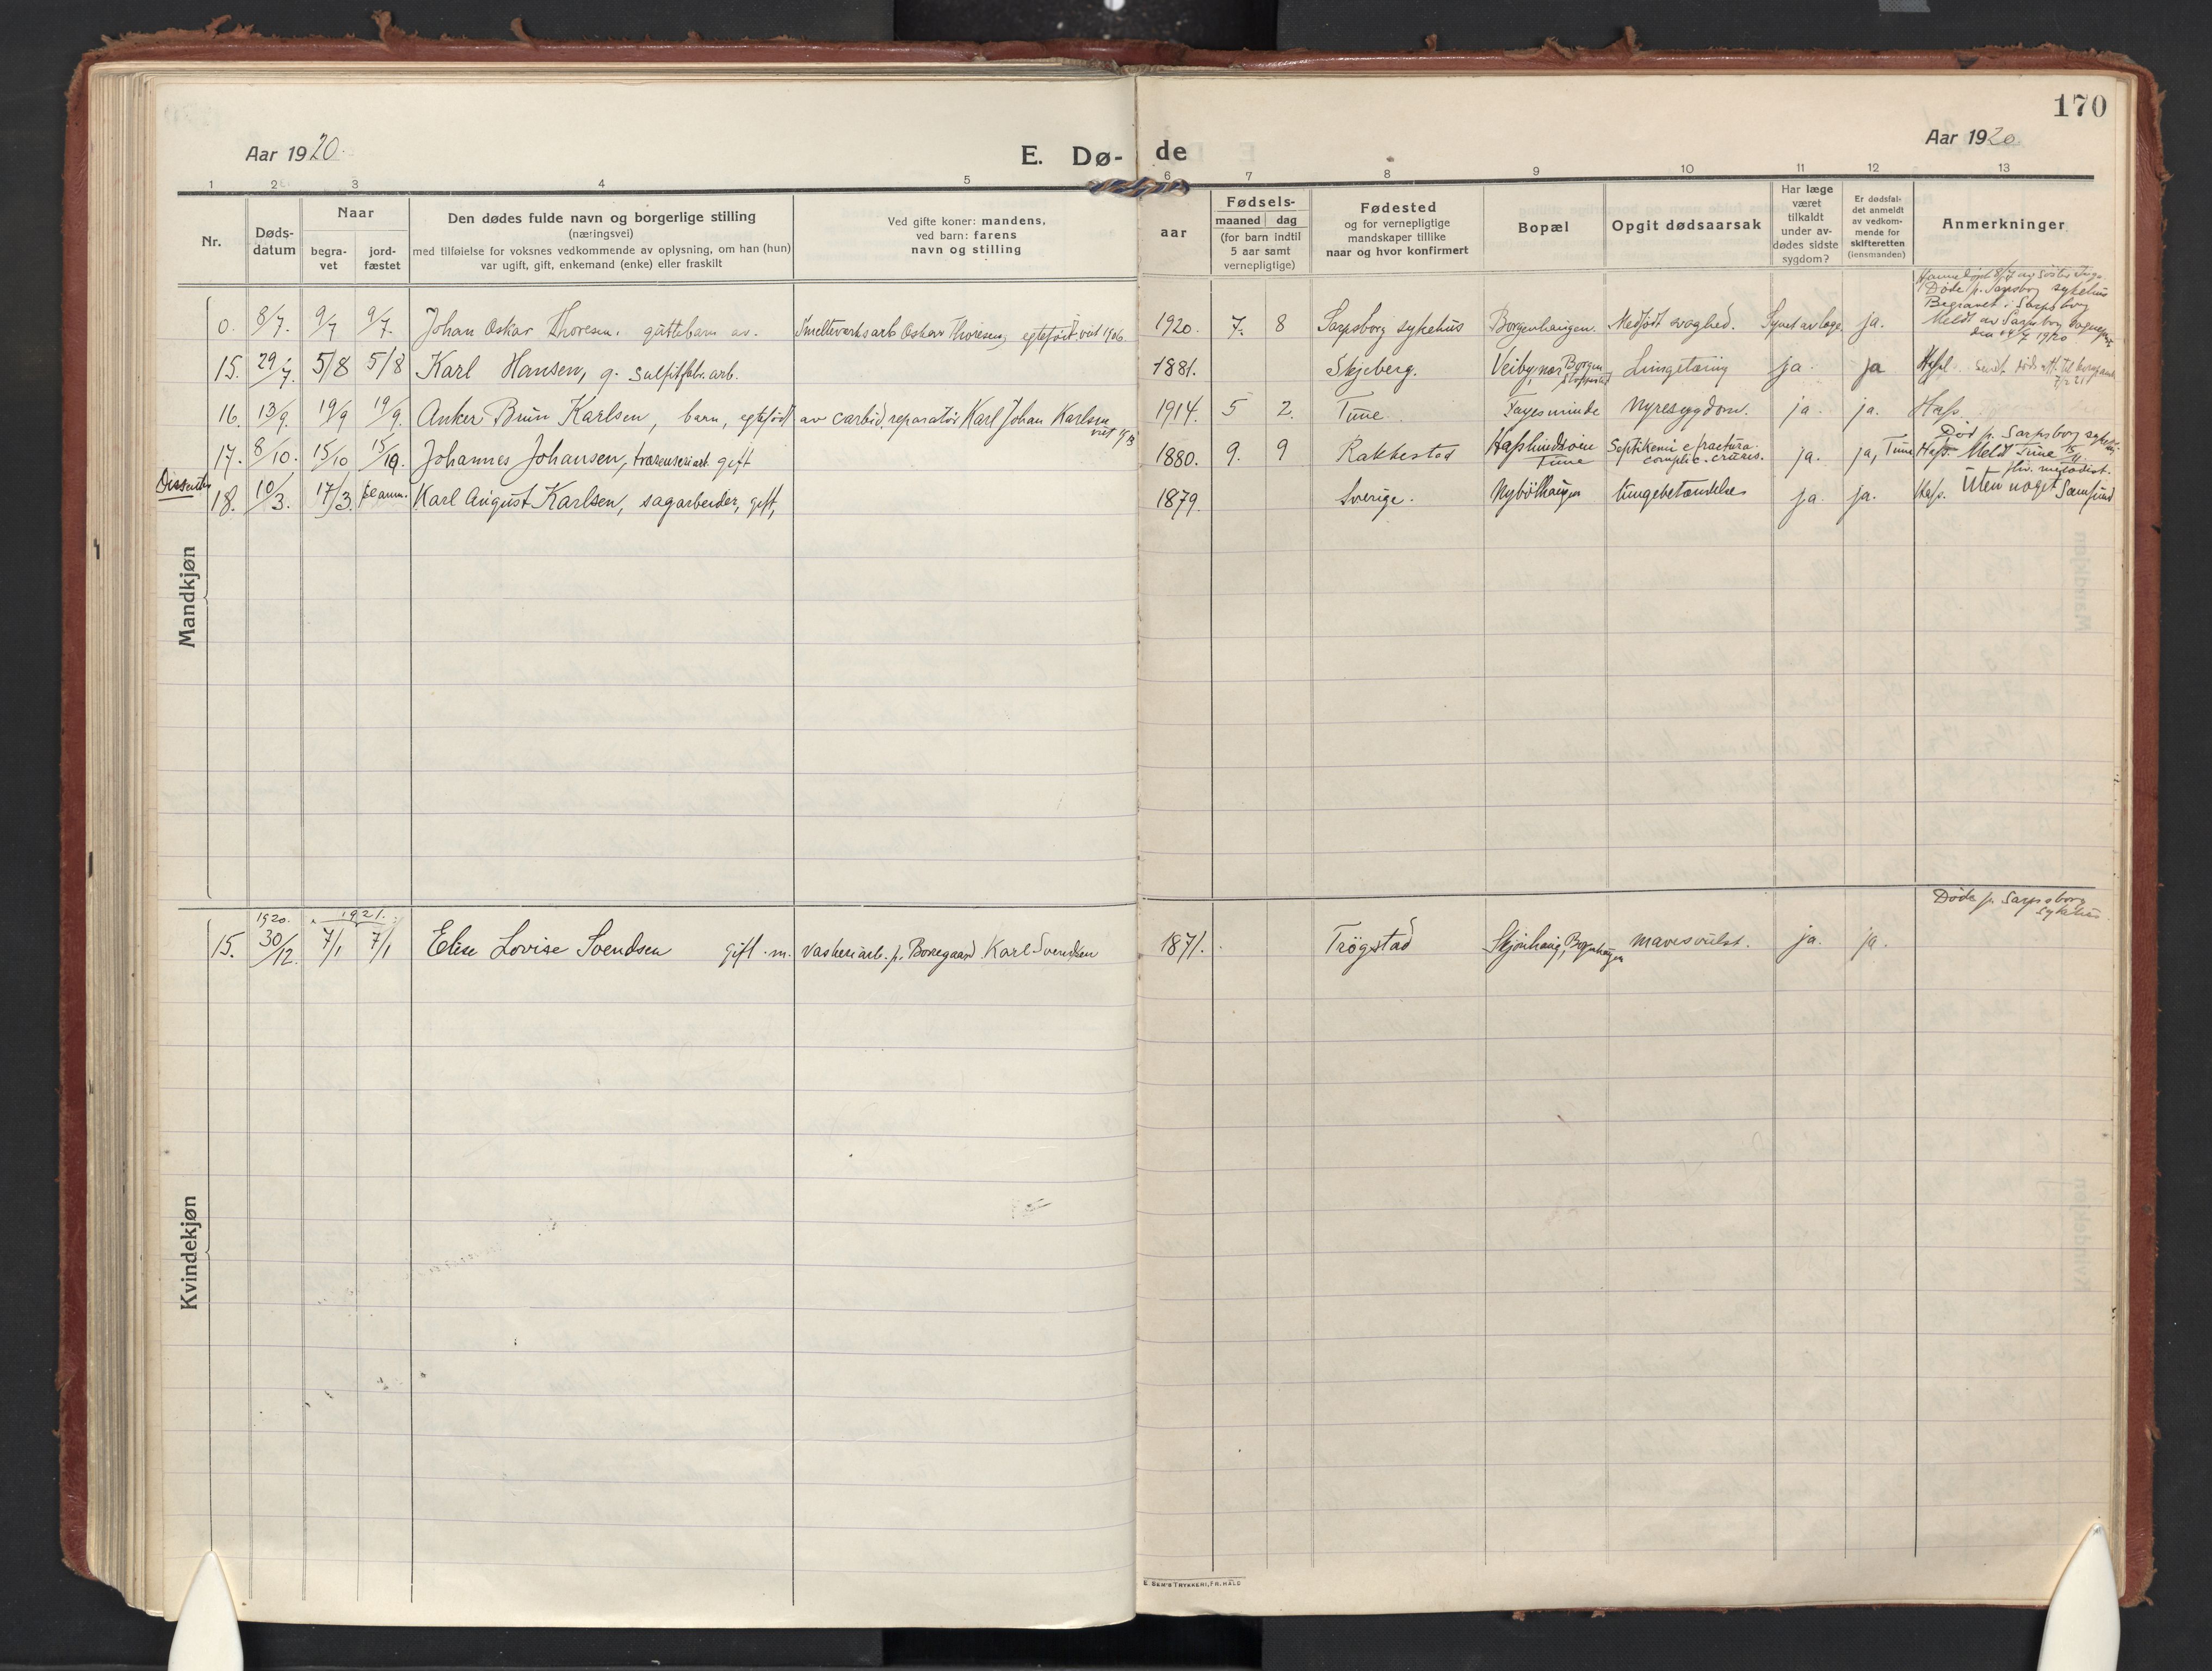 170
Aar 1920.
E. Dø- de
Aar 1920.
1 2 3 4 5 6 7 8 9 10 11 12 13
Nr.
Døds-
datum
Naar
begra-
vet
jord-
fæstet
Den dødes fulde navn og borgerlige stilling
(næringsvei)
med tilføielse for voksnes vedkommende av oplysning, om han (hun)
var ugift, gift, enkemand (enke) eller fraskilt
Ved gifte koner: mandens,
ved barn: farens
navn og stilling
aar
Fødsels-
maaned dag
(for barn indtil
5 aar samt
vernepligtige)
Fødested
og for vernepligtige
mandskaper tillike
naar og hvor konfirmert
Bopæl
Opgit dødsaarsak
Har læge
været
tilkaldt
under av-
dødes sidste
sygdom?
Er dødsfal-
det anmeldt
av vedkom-
mende for
skifteretten
(lensmanden)
Anmerkninger
Døde p. Sarpsborg sykehus
Begravet i Sarpsborg
Meldt av Sarpsborg
0. 8/7. 9/7 9/7. Johan Oskar Thoresen. guttebarn av. Smelteverksarb Oskar Thoresen, egtefødt. 1920. 7. 8 Sarpsborg sykehus Borgenhaugen. Medfødt svaghed. Synet av læge. ja.
15. 29/7. 5/8 5/8 Karl Hansen, g. sulfitfabr. arb. 1881. Skjeberg. Lungetæring ja. ja
16. 13/9. 19/9 19/9. Anker Brun Karlsen, barn, egtefødt av carbid. reparatør Karl Johan Karlsen 1914. 5 2. Tune. Nyresygdom. ja. ja. Hafs.
Død p. Sarpsborg
17. 8/10. 15/10 15/10. Johannes Johansen, gift 1880. 9. 9 Rakkestad Tune Septikemi e fractura complic. cruris. ja. ja, Tune Hafs. Meldt Tune
Dissenter
18. 10/3. 17/3. Karl August Karlsen, sagarbeider, gift, 1879. Sverige. ja. ja. Hafs. Uten noget Samfund
Mandkjøn
Døde p. Sarpsborg
sykehus.
1920. 1921.
15. 30/12. 7/1 7/1 Elise Lovise Svendsen gift. m. vaskeriarb. p. Borregaard Karl Svendsen 1871. Trøgstad mavesvulst. ja. ja.
Kvindekjøn
E SEM'S TRYKKERI, FR. HALD